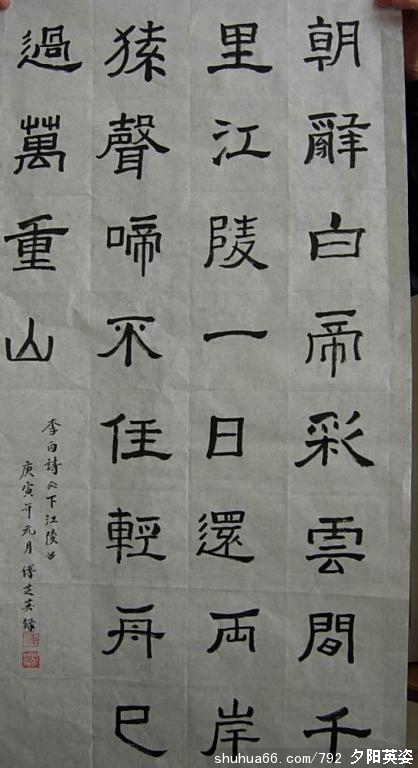 朝辭白帝彩雲間千
里江陵一日還兩岸
猿聲啼不住輕舟已
過萬重山
李白詩《下江陵》
庚寅年元月 傅芝英錄
shuhua66.com/792 夕阳英姿